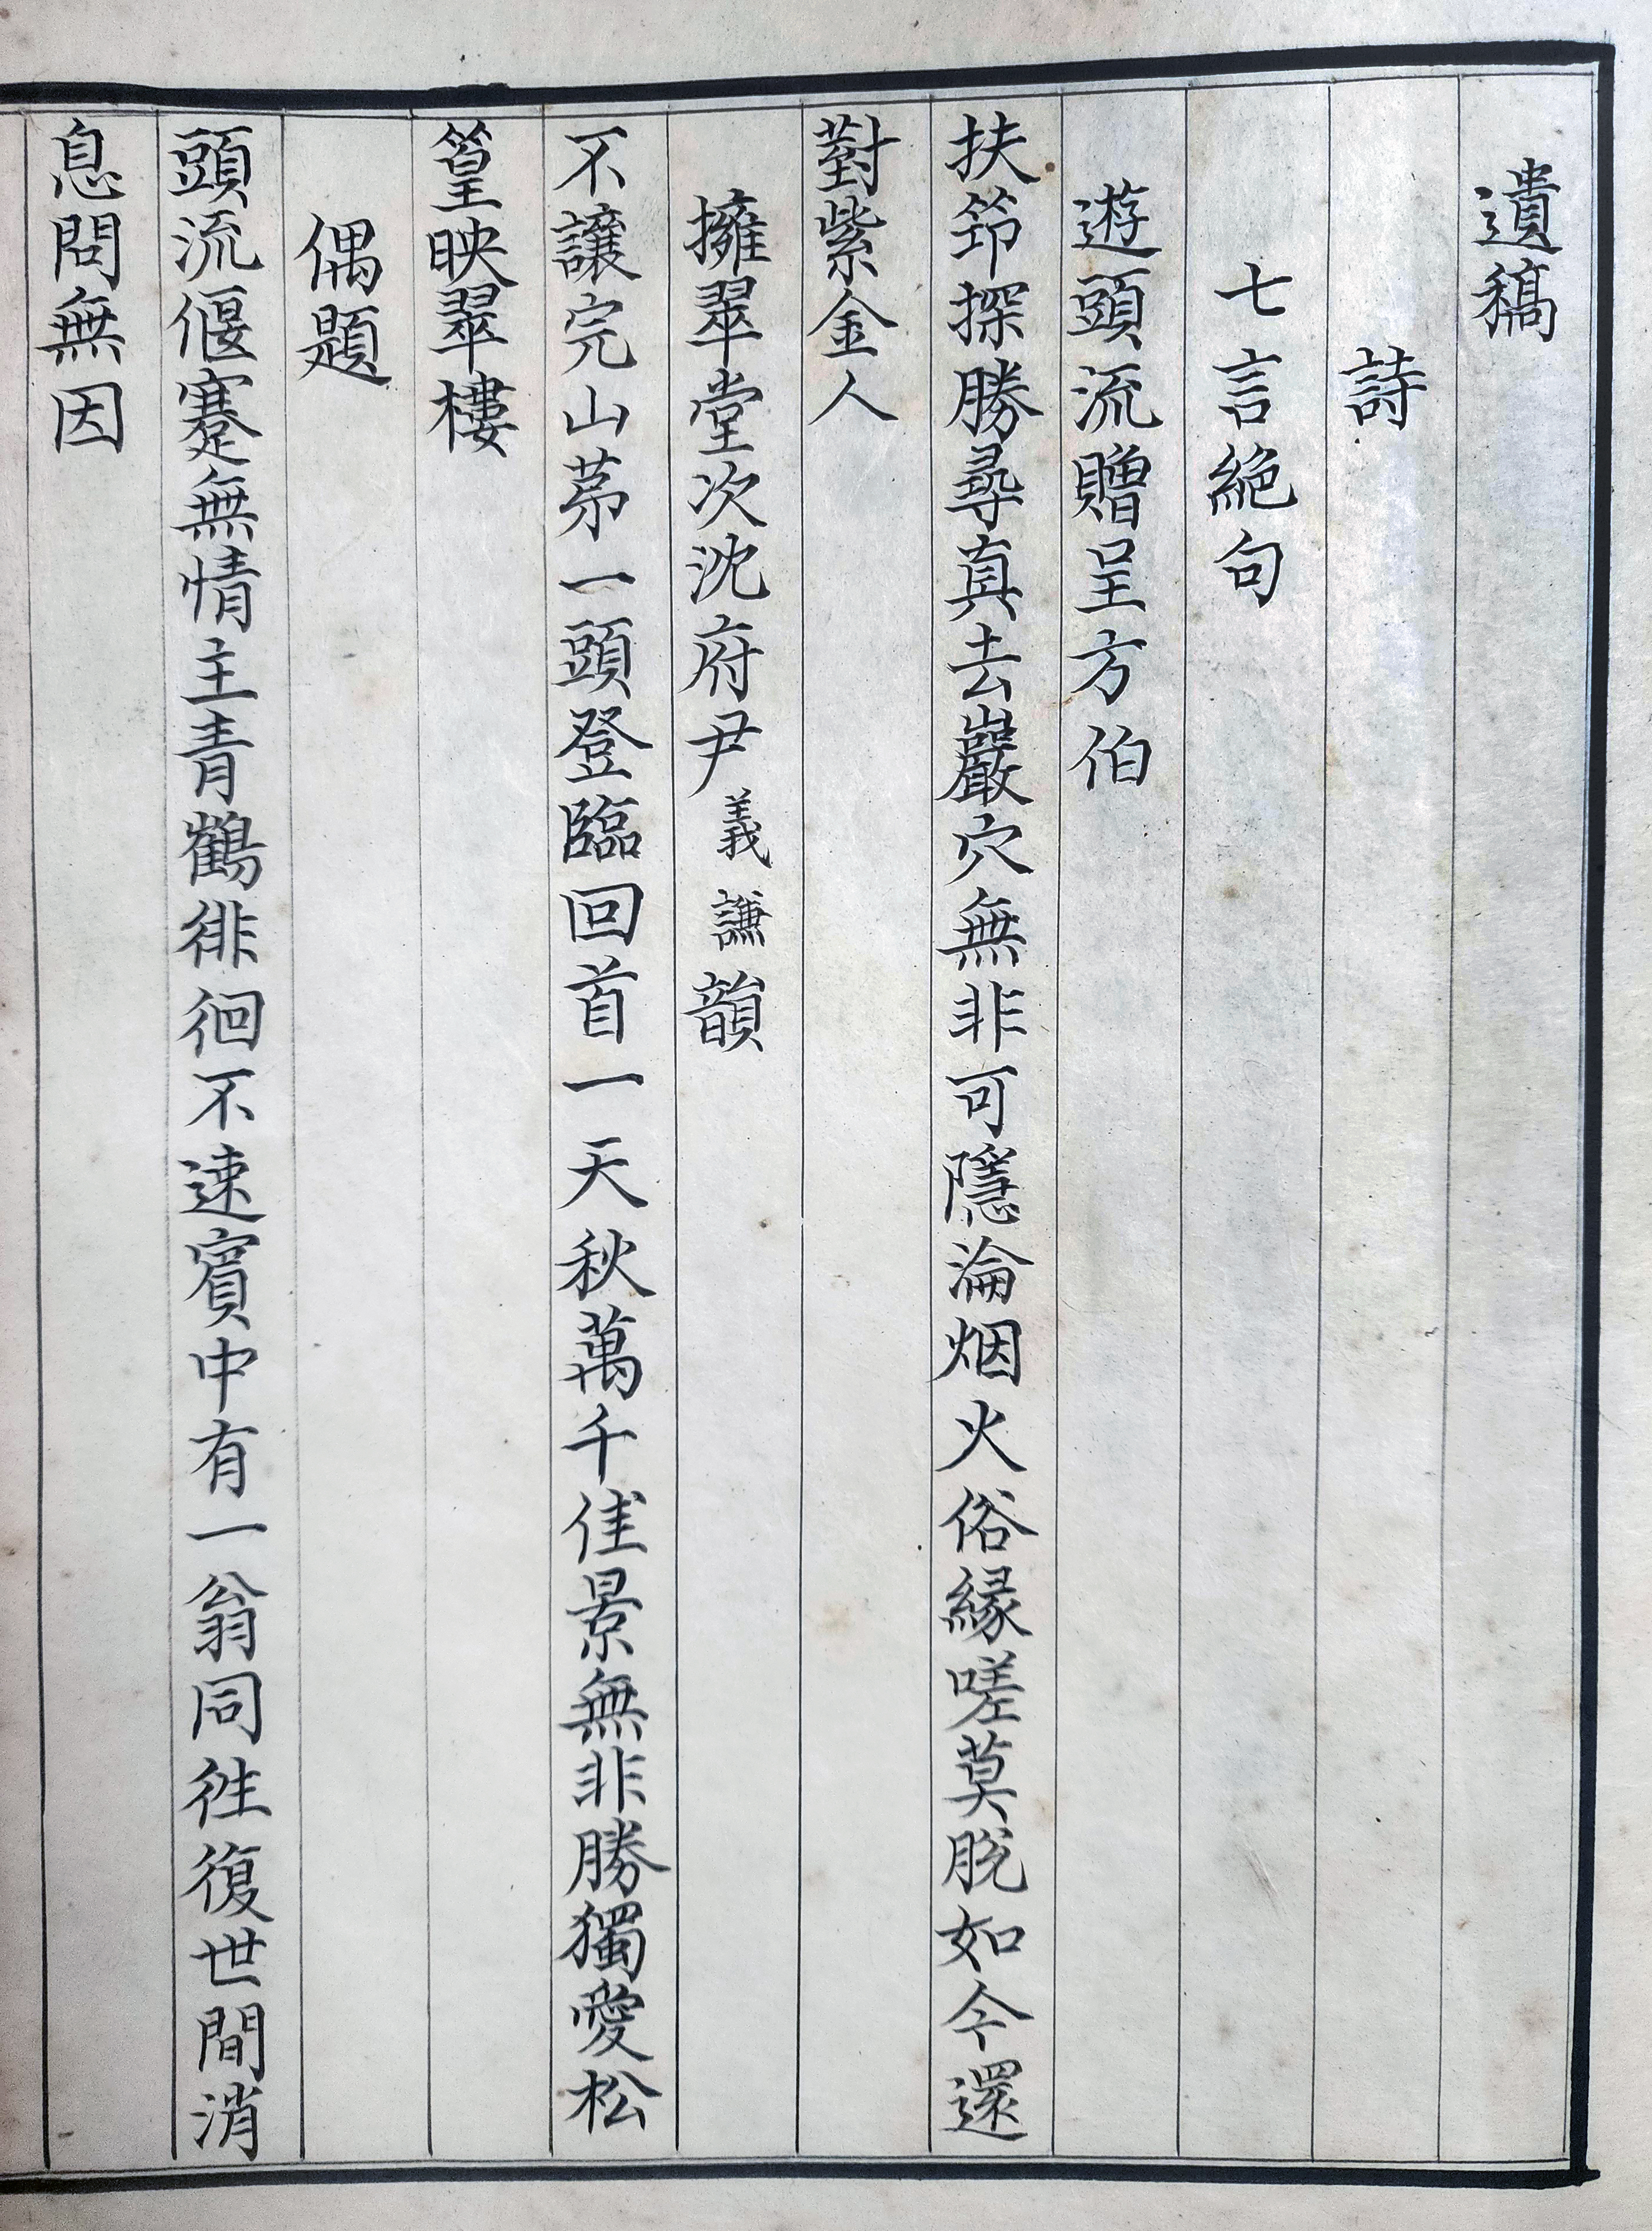 遺稿
詩
七言絶句
遊頭流贈呈方伯
扶筇探勝尋真去巖穴無非可隱淪烟火俗緣嗟莫脫如今還
對紫金人
擁翠堂次沈府尹義謙韻
不讓完山苐一頭登臨回首一天秋萬千佳景無非勝獨愛松
篁映翠樓
偶題
頭流偃蹇無情主青鶴徘徊不速賓中有一翁同徃復世間消
息問無因